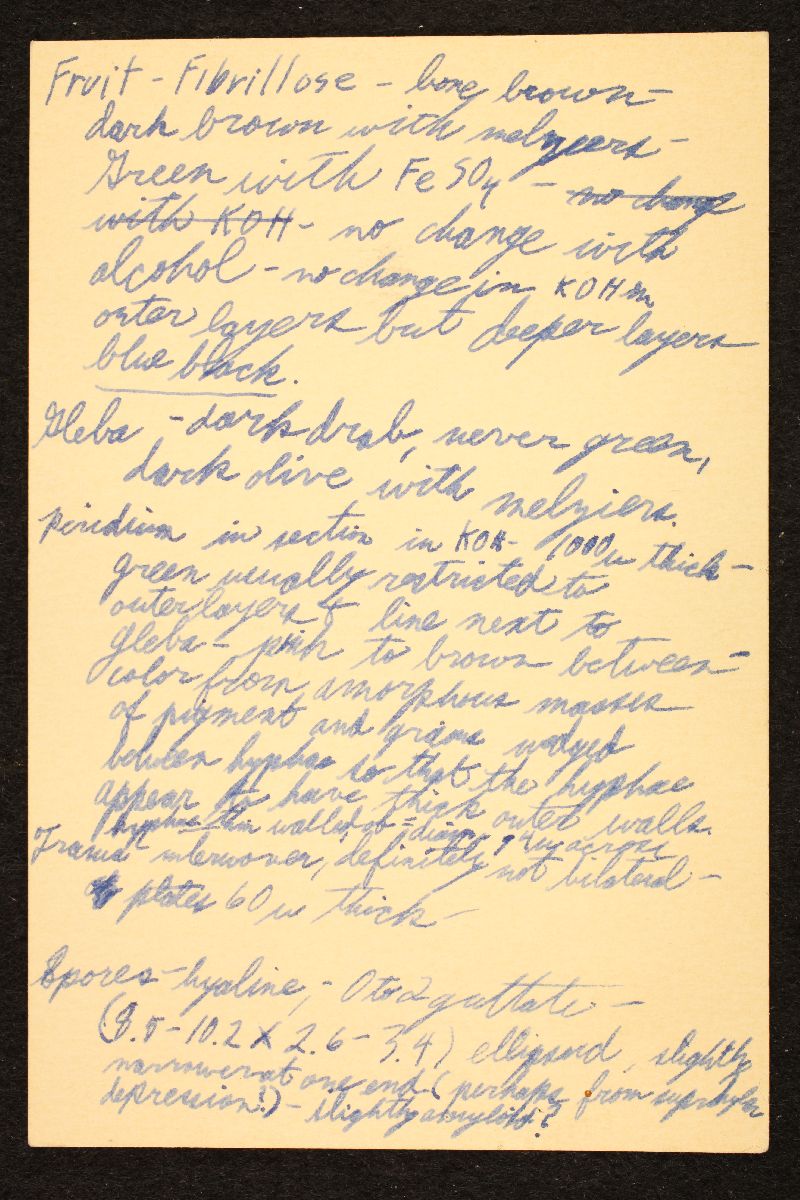 Fruit - Fibrillose - bone brown -
dark brown with melzeers -
Green with FeSO4 - no change
with KOH - no change with
alcohol - no change in KOH in
outer layers but deeper layers
blue black.
Gleba - dark drab, never green,
dark olive with melziers.
Peridium in section in KOH - 1000u thick -
green usually restricted to
outer layers & line next to
gleba - pink to brown between -
color from amorphous masses
of pigment and grains wedged
between hyphae so that the hyphae
appear to have thick outer walls.
hyphae thin walled diam. 4u across
Trama interwoven, definitely not bilateral -
plates 60 u thick -
Spores - hyaline, - 0 to 2 guttate -
(8.5 - 10.2 X 2.6 - 3.4) ellipsoid, slightly
narrower at one end (perhaps from suprahylar
depression!) - slightly amyloid?